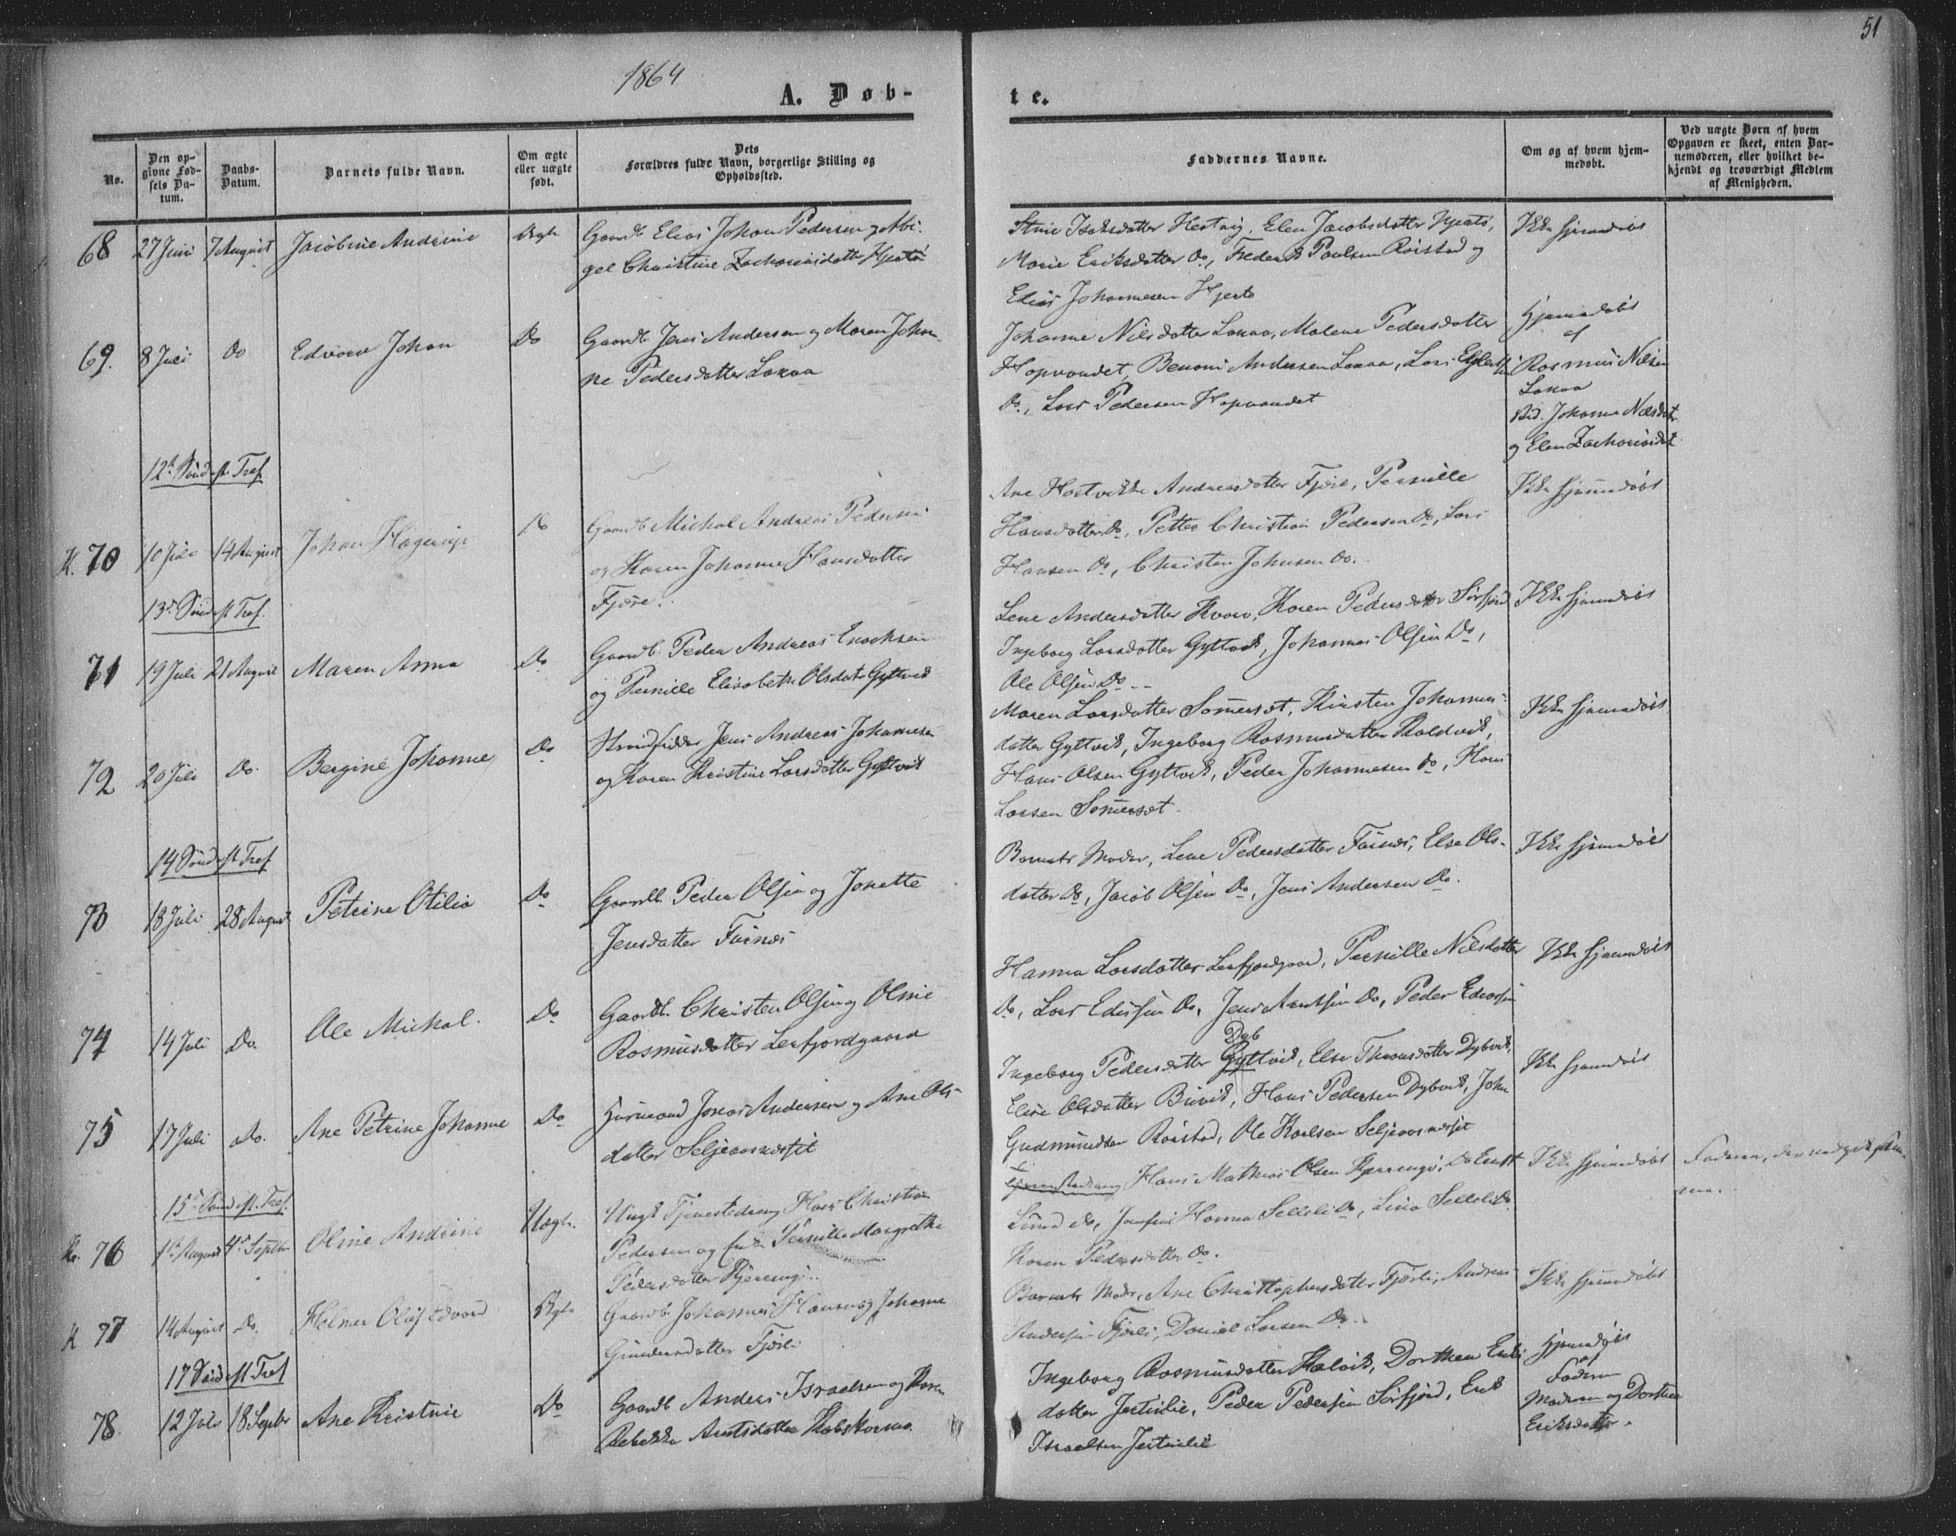 51
1864
A. Døb-
te.
No.
Den op-
givne Fød-
sels Da-
tum.
Daabs-
Datum.
Barnets fulde Navn.
Om ægte
eller uægte
født.
Dets
Forældres fulde Navn, borgerlige Stilling og
Opholdssted.
Faddernes Navne.
Om og af hvem hjem-
medøbt.
Ved uægte Børn af hvem
Opgaven er skeet, enten Bar-
nemoderen, eller hvilket be-
kjendt og troværdigt Medlem
af Menigheden.
68 27 Juni 7 August Jacobine Andrine Ægte Gaardb. Elias Johan Pedersen og Abi-
gel Christine Zachariasdatter Hjertø
Stine Isaksdatter Hestvig, Elen Jacobsdatter Hjertø,
Marie Eriksdatter Do, Frederik Paulsen Røistad og
Elias Johannesen Hjertø
Ikke hjemmedøbt
69. 8 Juli Do Edvard Johan Do Gaardb. Jens Andersen og Maren Johan-
ne Pedersdatter Laxaa
Johanne Nilsdatter Laxaa, Malene Pedersdatter
Hopvandet, Benoni Andersen Laxaa, Lars
Do., Lars Pedersen Hopvandet
Hjemmedøbt
af
Rasmus Nilsen
Laxaa
Johanna Nilsdatt.
og Elen Zachariasdat.
12te Sønd eft. Tref.
K. 70 10 Juli 14 August Johan Hagerup Do Gaardb. Michal Andreas Pedersen
og Karen Johanna Hansdatter
Fjære.
Ane Hartvikke Andreasdatter Fjære, Pernille
Hansdatter Do, Petter Christian Pedersen Do, Lars
Hansen Do, Christen Johnsen Do.
Ikke hjemmedøbt
13de Sønd eft Tref.
71 19 Juli 21 August Maren Anna Do Gaardb. Peder Andreas Enochsen
og Pernille Elisabeth Olsdatr Gyltvik
Lene Andersdatter Kvarv, Karen Pedersdatter Sørfjord
Ingeborg Larsdatter Gyltvik, Johannes Olsen Do,
Ole Olsen Do
Ikke hjemmedøbt
72 20 Juli Do. Bergine Johanne Do Jens Andreas Johannesen
og Karen Kristine Larsdatter Gyltvik
Maren Larsdatter Sommerset, Kirsten Johannes-
datter Gyltvik, Ingeborg Rasmusdatter Kaldvik,
Hans Olsen Gyltvik, Peder Johannesen Do, Hans
Larsen Sommerset.
Ikke hjemmedøbt
14 Sønd eft Tref
73 18 Juli 28 August Petrine Otilia Do Gaardb. Peder Olsen og Jonette
Jensdatter Furnæs
Barnets Moder, Lene Pedersdatter Furnæs, Else Ols-
datter Do, Jacob Olsen Do, Jens Andersen Do.
Ikke hjemmedøbt
74 14 Juli Do. Ole Michal. Do Gaardb. Christen Olsen og Oline
Rasmusdatter Leirfjordgaard
Hanna Larsdatter Leirfjordgaard, Pernille Nilsdatter
Do, Lars Do, Jens Arntsen Do, Peder
Ikke hjemmedøbt
75 17 Juli Do. Ane Petrine Johanne Do Huusmand Jonas Andersen og Ane Ols-
datter Seljeaasnæsset
Dyb
Ingeborg Pedersdatter Gyltvik, Else Thomasdatter Dybvik,
Elise Olsdatter Buvik, Hans Pedersen Dybvik, John
Gudmundsen Røistad, Ole Karlsen Seljeaasnæsset
Ikke hjemmedøbt
15de Sønd eft. Tref.
K. 76 1ste August 4de Septbr Oline Andrine Uægte. Ungk. Tjenestedreng Hans Christian
Pedersen og Pernille Margrethe
Pedersdatter Kjerringø..
Hans Mathias Olsen Kjerringø, Do Ernst
Lund Do, Hanna Sellæli Do, Lina Sellæli Do.
Karen Pedersdatter Do.
Ikke hjemmedøbt
Faderen,
77 14 August Do. Helmer Olaf Edvard Ægte Gaardb. Johannes Hansen og Johanna
Gundersdatter Fjærli
Barnets Moder, Ane Christophersdatter Fjærli, Andreas
Andersen Fjærli, Daniel Larsen Do.
Ikke hjemmedøbt
17 Sønd eft Tref
78. 12 Juli 18 Septbr Ane Kristine Do Gaardb Anders Israelsen og Karen
Rebekka Arntsdatter
Ingeborg Rasmusdatter Kalvik, Dorthea Eriks-
datter, Peder Pedersen Sørfjord, Erik
Israelsen
Hjemmedøbt
af
Faderen
Moderen og Dorthea
Eriksdatter.